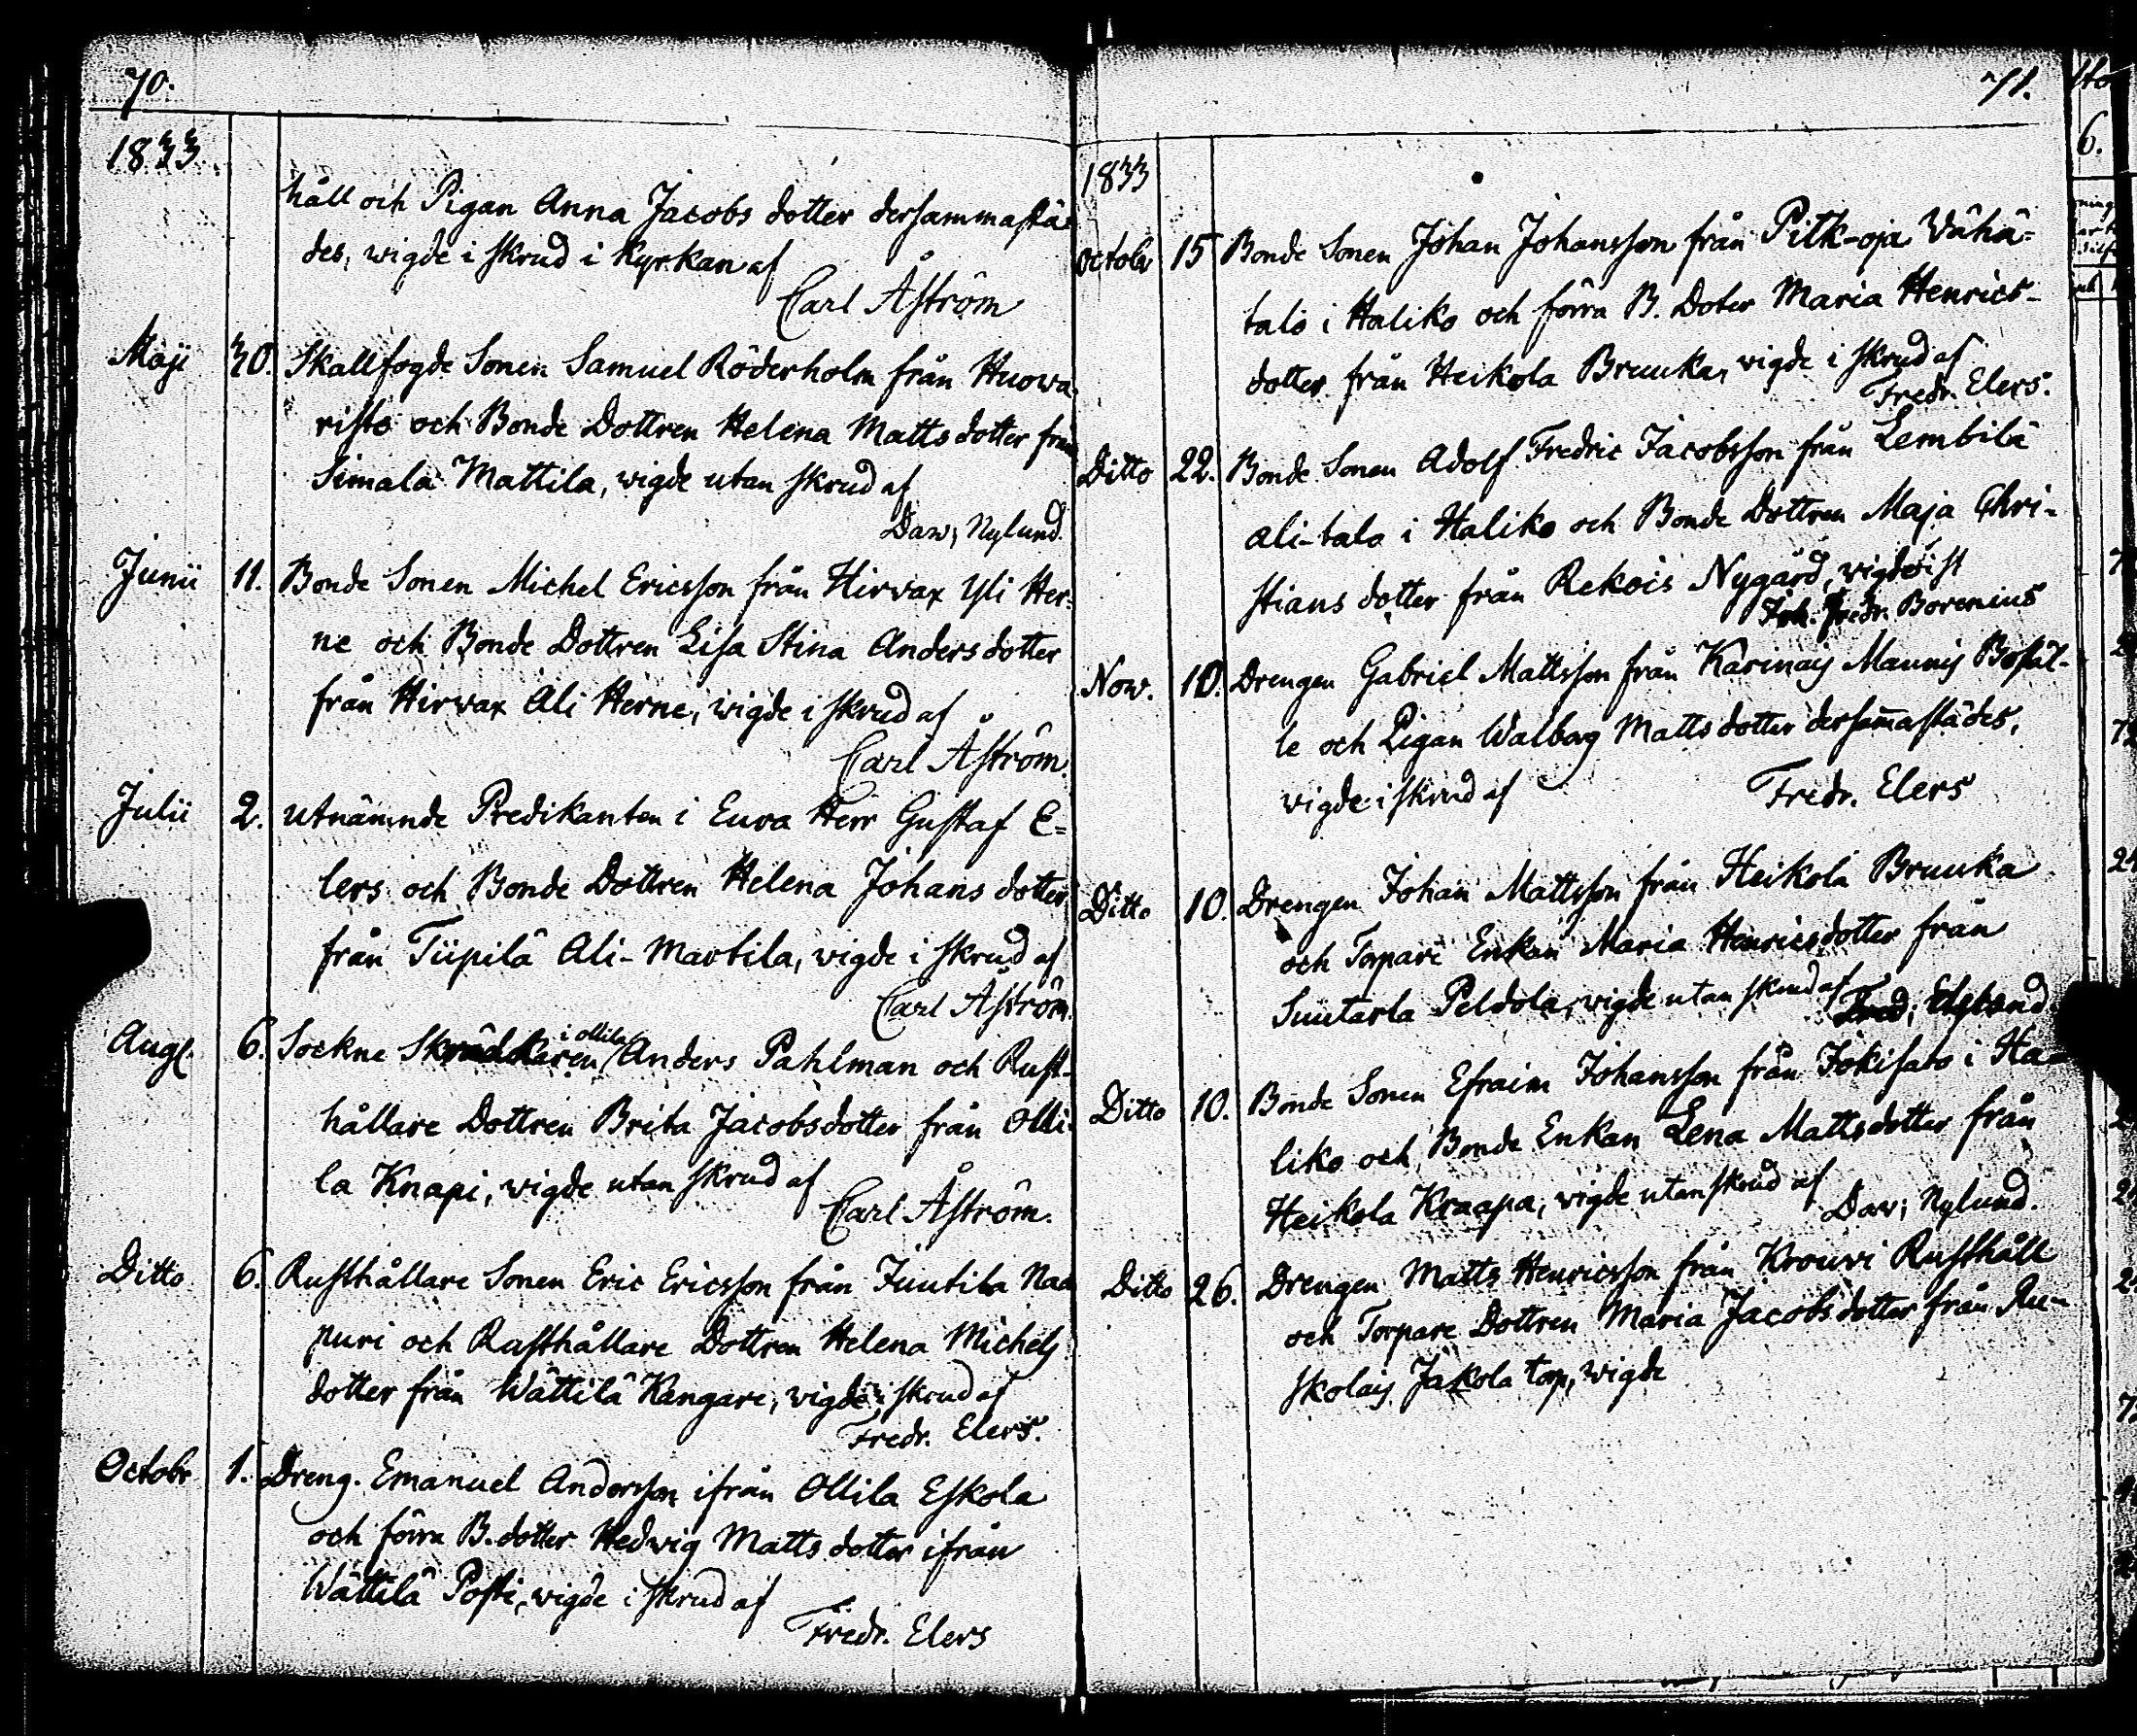 70.
1833
håll och Pigan Anna Jacobs dotter dersammastä-
des, wigde i skrud i Kyrkan af
Carl Åström
Maji 30. Skallfogde Sonen Samuel Röderholm från Huowa-
risto och Bonde Dottren Helena Matts dotter från
Simala Mattila, wigde utan skrud af
Daw; Nylund.
Junii 11. Bonde Sonen Michel Ericsson från Hirvax Yli Her-
ne och Bonde Dottren Lisa Stina Anders dotter
från Hirvax Ali Herne, wigde i skrud af
Carl Åström.
Julii 2. utnämnde Predikanten i Eura Herr Gustaf E-
lers och Bonde Dottren Helena Johans dotter
från Tiipilä Ali-Martila, wigde i skrud af
Carl Åström.
i Ollila
Aug. 6. Sockne Skräddaren Anders Pahlman och Rust-
hållare Dottren Brita Jacobsdotter från Olli-
la Knapi, wigde utan skrud af
Carl Åström.
Ditto 6. Rusthållare Sonen Eric Ericsson från Juutila Naa
puri och Rusthållare Dottren Helena Michels
dotter från Wättilä Kangare, wigde i skrud af
Fredr. Elers.
Octobr 1. Dreng. Emanuel Andersson ifrån Ollila Eskola
och förra B. dotter Hedwig Matts dotter ifrån
Wättilä Posti, wigde i skrud af
Fredr. Elers
71.
1833
Octobr 15 Bonde Sonen Johan Johansson från Pitk-oja Vähä-
talo i Haliko och förra B. Doter Maria Henrics-
dotter från Heikola Bruuka, wigde i skrud af
Fredr. Elers.
Ditto 22. Bonde Sonen Adolf Fredric Jacobsson från Lembilä
Ali-talo i Haliko och Bonde Dottren Maja Chri-
stians dotter från Rekois Nygård, wigde i sk
Joh. Fredr. Borenius
Now. 10. Drengen Gabriel Mattsson från Karinais Maunis Bostäl-
le och Pigan Walborg Matts dotter dersammastädes,
wigde i skrud af Fredr. Elers
Ditto 10. Drengen Johan Mattsson från Heikola Bruuka
och Torpare Enkan Maria Henricsdotter från
Suutarla Peldola, wigde utan skrud af
Ditto 10. Bonde Sonen Efraim Johansson från Jokisato i Ha-
liko och Bonde Enkan Lena Mattsdotter från
Heikola Kraapa, wigde utan skrud af Daw; Nylund.
Ditto 26. Drengen Matts Henricsson från Krouvi Rusthåll
och Torpare Dottren Maria Jacobs dotter från Ru-
skolais Jakola torp, wigde